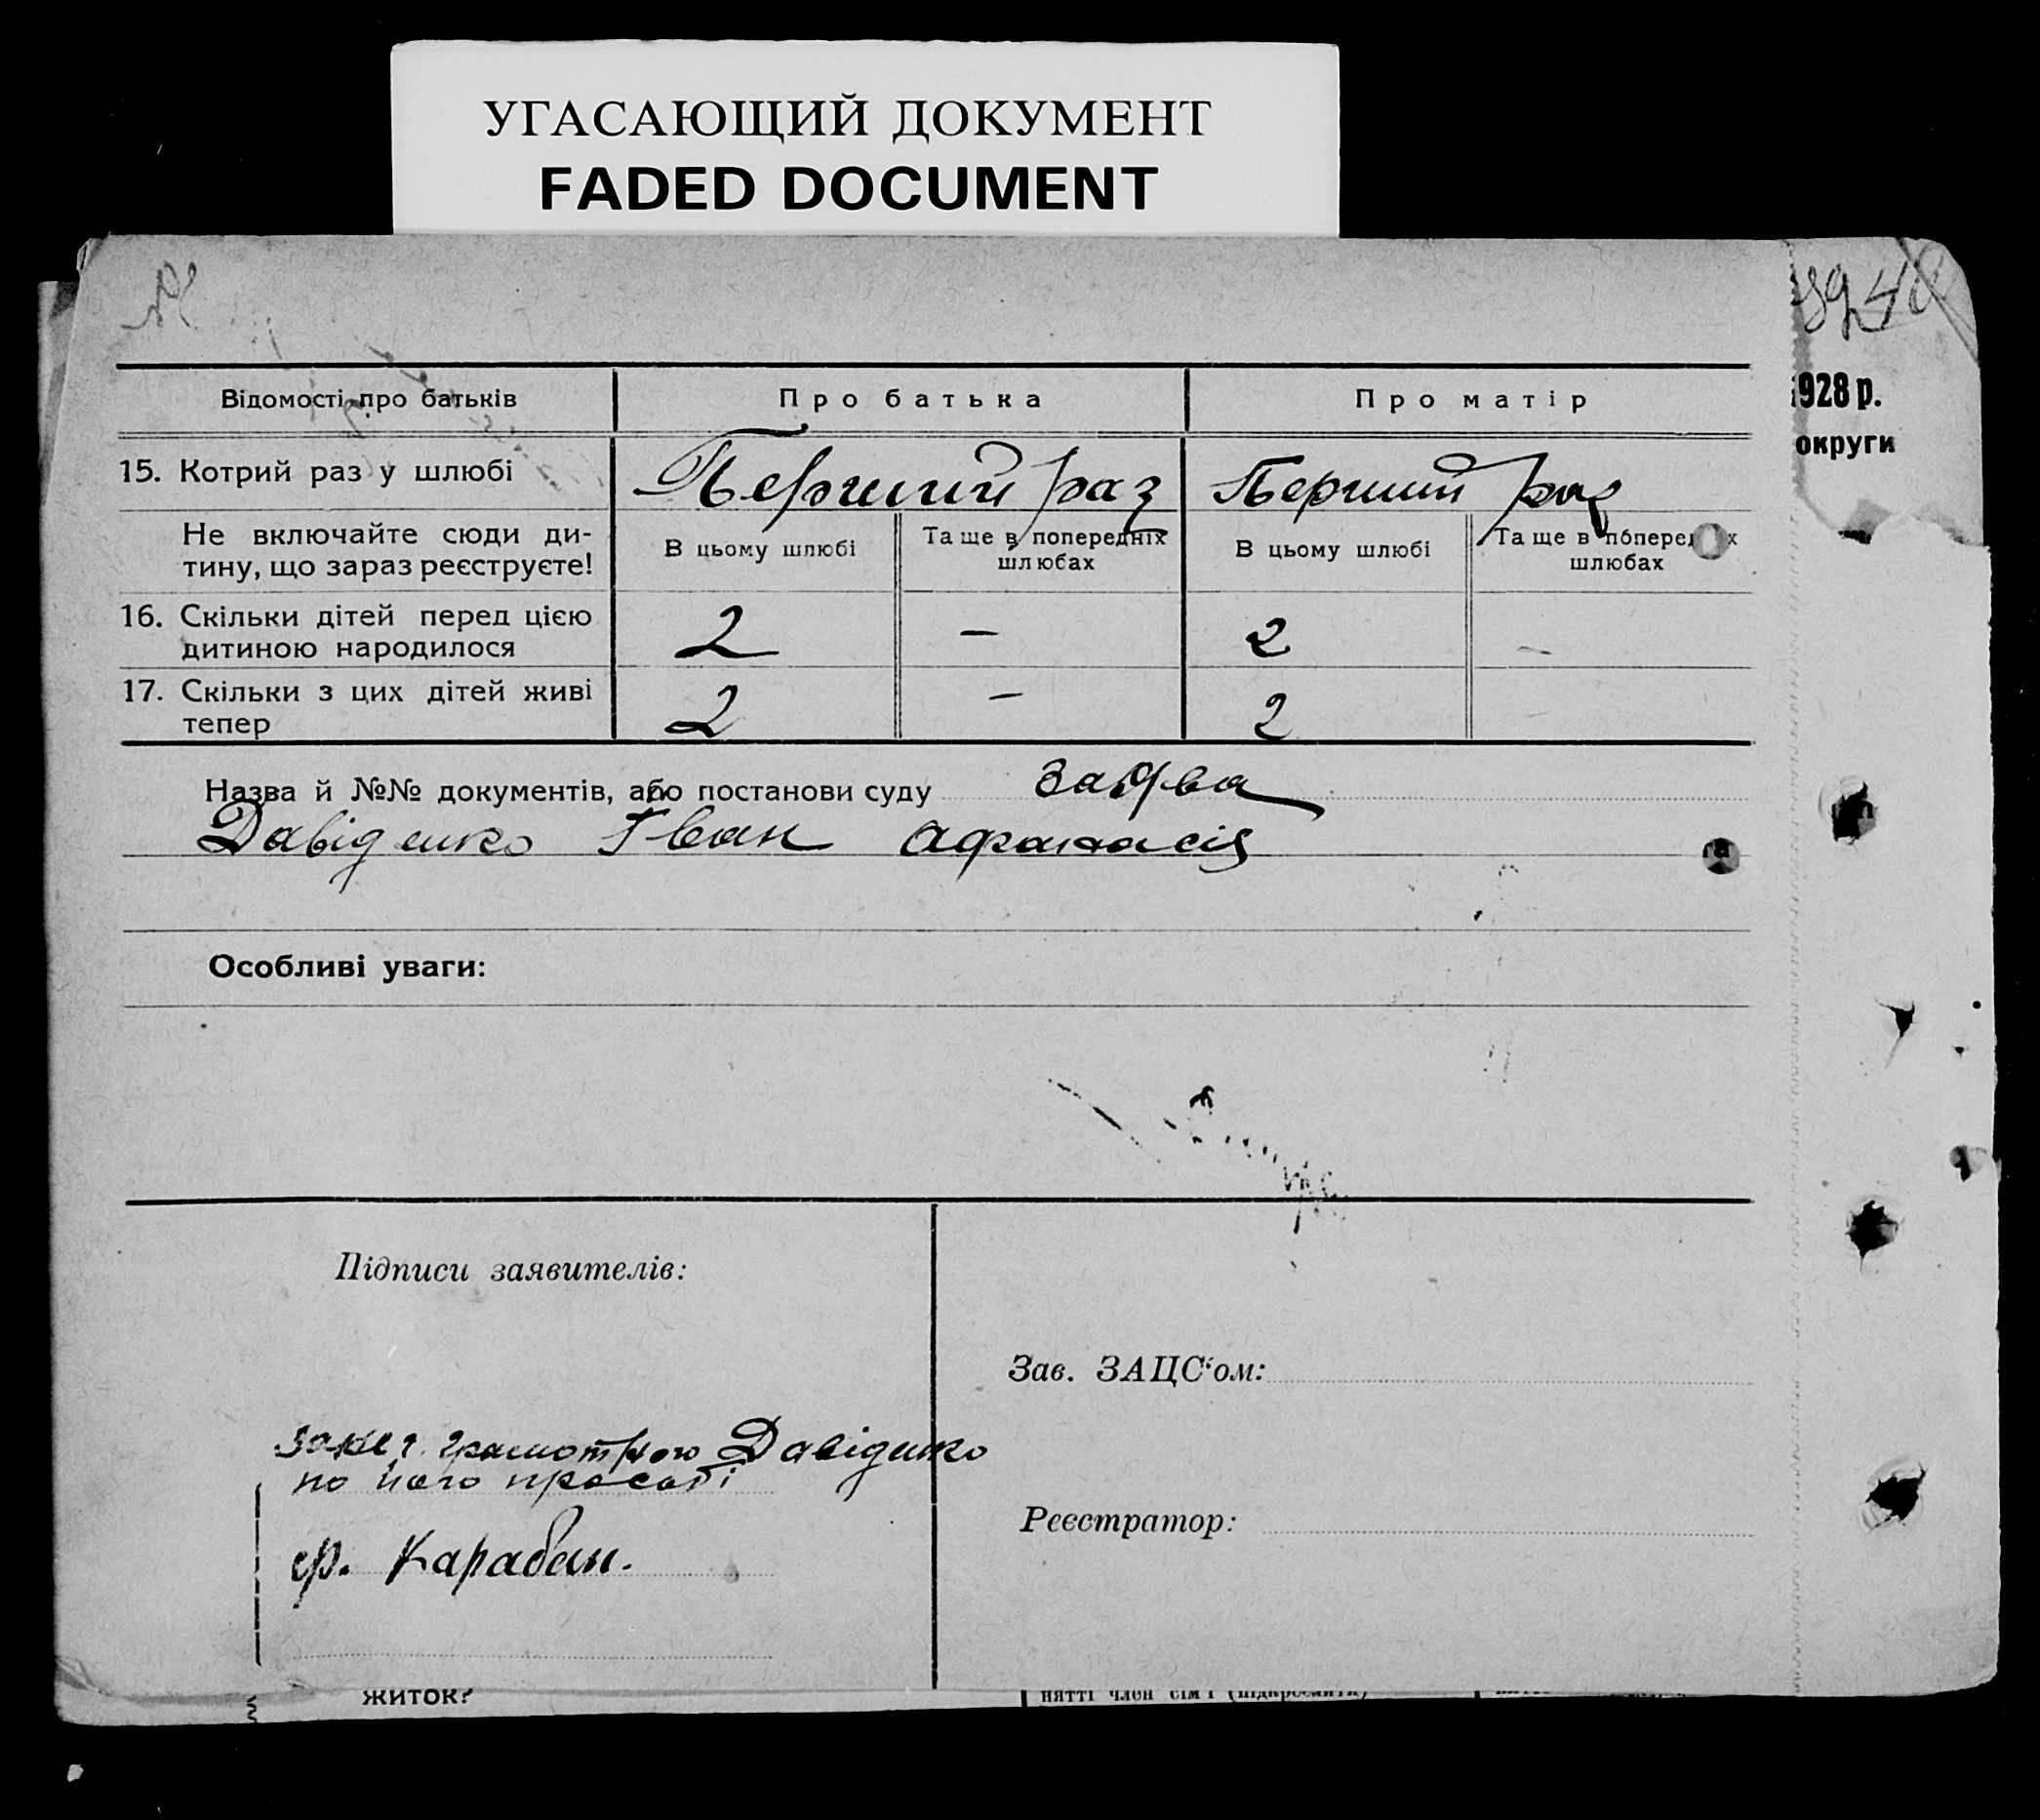 УГАСАЮЩИЙ ДОКУМЕНТ
FADED DOCUMENT
928 р.
округи
Відомості про батьків Про батька Про матір
15. Котрий раз у шлюбі Перший раз Перший раз
Не включайте сюди ди-
тину, що зараз реєструєте!
В цьому шлюбі Та ще в попередніх
шлюбах
В цьому шлюбі Та ще в попередніх
шлюбах
16. Скільки дітей перед цією
дитиною народилося 2 — 2 —
17. Скільки з цих дітей живі
тепер 2 — 2 -
Назва й №№ документів, або постанови суду заява
Давіденко Іван Афанасія
Особливі уваги:
Підписи заявителів:
Зав. ЗАЦС‘ом:
Давіденко
по його просьбі
Ф. Карабан.
Реєстратор:
житок?
нятті член сім'ї (підкреслити)